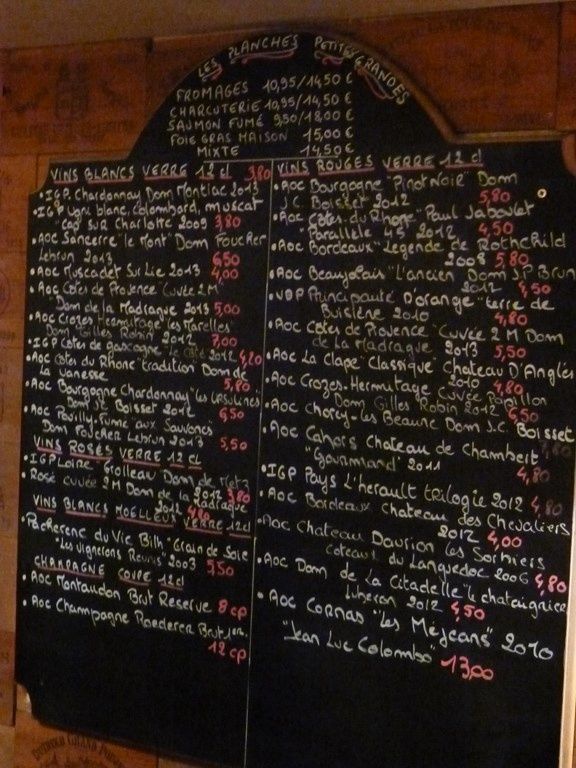 LES PLANCHES PETITES GRANDES
FROMAGES 10,95/14,50 €
CHARCUTERIE 10,95/14,50 €
SAUMON FUMÉ 9,50/18,00 €
FOIE GRAS MAISON 15,00 €
MIXTE 14,50 €
VINS BLANCS VERRE 12 cl 3,80
• IGP. Chardonnay Dom Montlac 2013
• IGP Ugni blanc, colombard, muscat
"Cap sur Charlotte 2009 3,80
• AOC Sancerre "le Mont" Dom Foucher
Lebrun 2013 6,50
• AOC Muscadet Sur Lie 2013 4,00
• AOC Côtes de Provence "Cuvée 2M"
Dom de la Madrague 2013 5,00
• AOC Crozes Hermitage "les Marelles"
Dom Gilles Robin 2012 7,00
• IGP Côtes de gascogne le Côté 2012 4,20
• AOC Côtes du Rhone tradition Dom de
la Vanesse 5,80
• AOC Bourgogne Chardonnay "les Ursulines"
Dom JC Boisset 2012 6,50
• AOC Pouilly-Fumé
Dom Foucher Lebrun 2013 5,50
VINS ROSÉS VERRE 12 cl
• IGP Loire "Grolleau Dom de 2012 3,80
Rosé cuvée 2M Dom de la Madrague
2012 4,80
VINS BLANCS MOELLEUX VERRE 12cl
• Pacherenc du Vic Bilh "Grain de Soie
"Les Vignerons Réunis" 2003 5,50
CHAMPAGNE COUPE 12cl
• AOC Montaudon Brut Reserve 8 cp
• AOC Champagne Roederer Brut
12 cp
VINS ROUGES VERRE 12 cl
• AOC Bourgogne "Pinot Noir" Dom
J.C Boisset 2012 5,80
• AOC Côtes du Rhone "Paul Jaboulet
"Parallèle 45" 2012 4,50
• AOC Bordeaux "Legende de Rothchild
2008 5,80
• AOC Beaujolais "L'ancien Dom J.P Brun
2012 4,50
• Principauté D'orange "terre de
2010 4,80
• AOC Côtes de Provence "Cuvée 2 M Dom
de la Madrague 2013 5,50
• AOC La Clape "Classique Chateau D'Anglès
2010 4,80
• AOC Crozes-Hermitage Cuvée Papillon
Dom Gilles Robin 2012 6,50
• AOC Chorey-les Beaune Dom J.C. Boisset
• AOC Cahors Chateau de Chambert
"Gourmand" 2011 4,80
• IGP Pays L'herault trilogie 2012 4,80
• AOC Bordeaux Chateau des Chevaliers
2012 4,00
• AOC Chateau Daurion les
coteaux du Languedoc 2006 4,80
• AOC Dom de La Citadelle "le chataignier
Luberon 2012 4,50
• AOC Cornas "Les Méjeans" 2010
"Jean Luc Colombo" 13,00